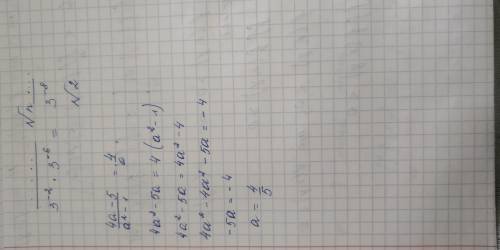 √1
3⁻² · 3⁻⁶ = 3⁻⁸
√2
(4a - 5)/(a² - 1) = 4/a
4a² - 5a = 4(a² - 1)
4a² - 5a = 4a² - 4
4a² - 4a² - 5a = -4
-5a = -4
a = 4/5